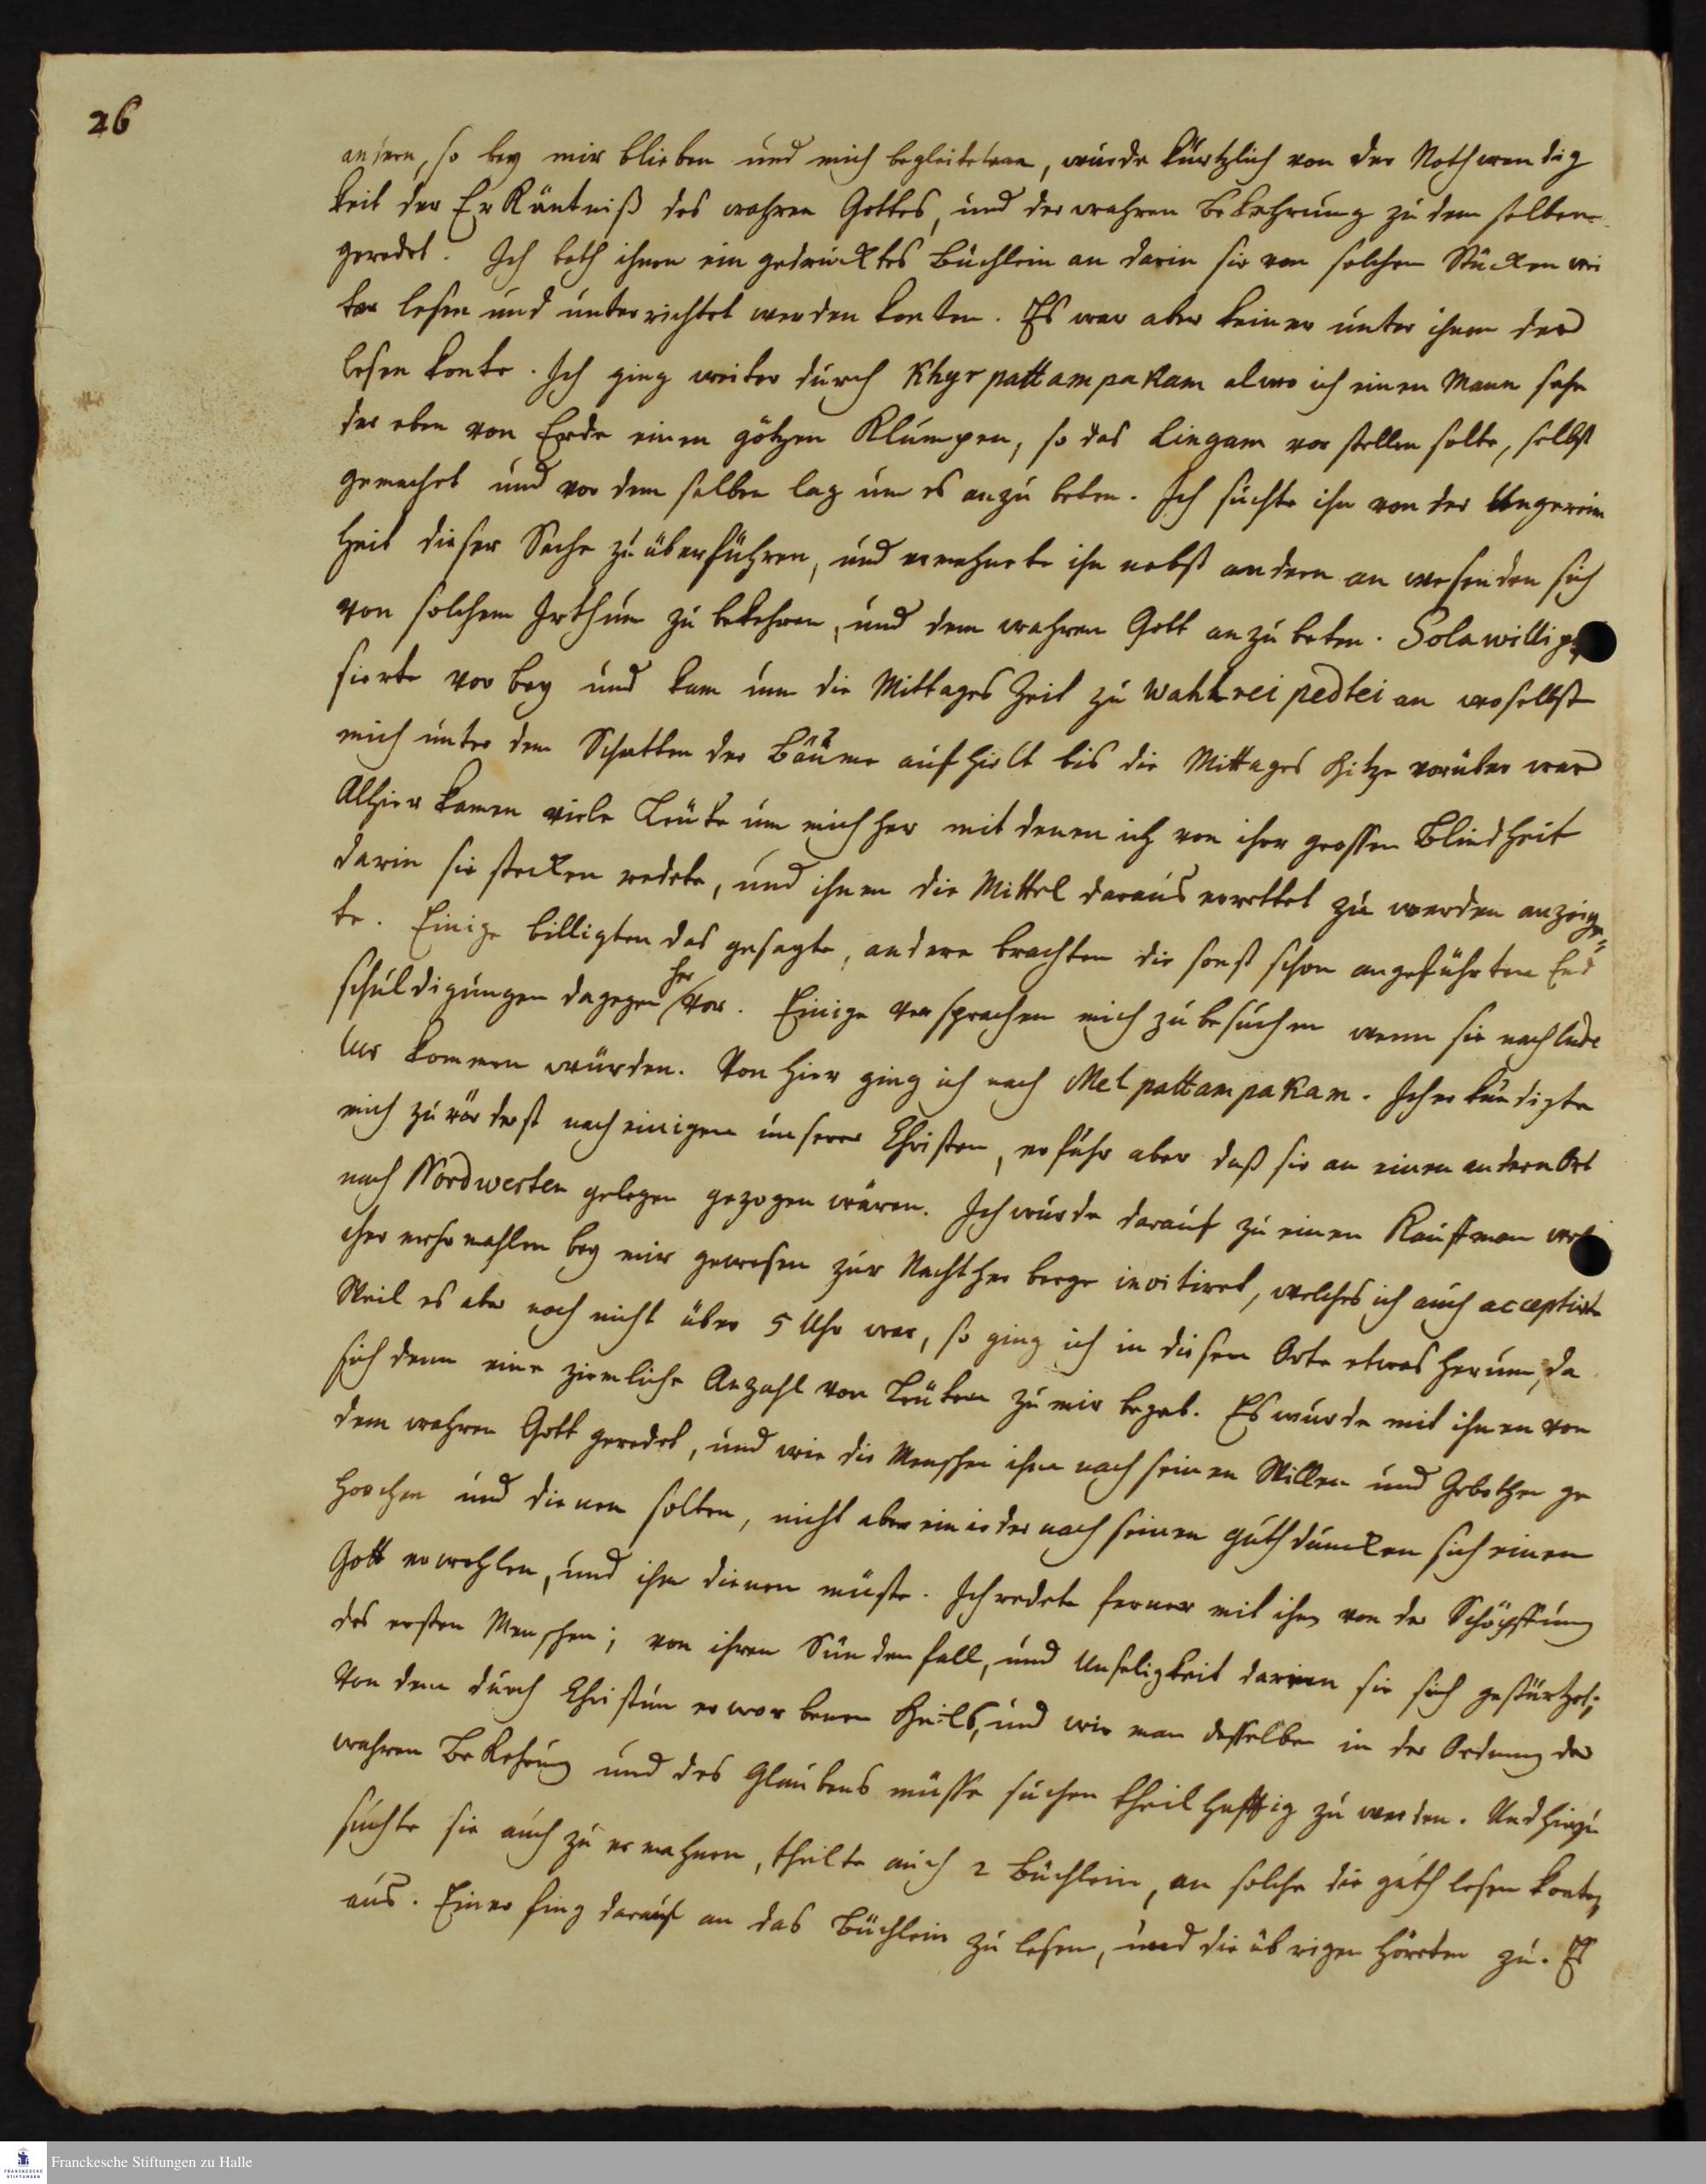 26
andern, so bey mir blieben und mich begleiteten, wurde kürtzlich von der Nothwendig
keit der Erkäntniß des wahren Gottes, und der wahren Bekehrung zu dem selben
geredet. Ich both ihnen ein gedrucktes Büchlein an darin sie von solchen Stücken wei
ter lesen und unterrichtet werden konten. Es war aber keiner unter ihnen der
lesen konte. Ich ging weiter durch Khyr pattampakam alwo ich einen Mann sahe
der eben von Erde einen götzen Klumpen, so das Lingam vor stellen solte, selbst
gemachet und vor dem selben lag um es anzu beten. Ich suchte ihn von der Ungereim
heit dieser Sache zu überführen, und ermahnete ihn nebst andern an wesenden sich
von solchem Irthum zu bekehren, und dem wahren Gott anzu beten. Solawilli
sierte vor bey und kam um die Mittages Zeit zu Wahlrei pedtei an woselbst
mich unter dem Schatten der Bäume aufhielt bis die Mittages hitze vorüber war
Alhier kamen viele Leute um mich her mit denen ich von ihrer grossen Blindheit
darin sie stecken redete, und ihnen die Mittel daraus errettet zu werden anzeige-
te. Einige billigten das gesagte, andere brachten die sonst schon angeführten End
schuldigungen dagegen her vor. Einige versprachen mich zu besuchen wenn sie nach Cude
lur kommen würden. Von hier ging ich nach Mel pattampakam. Ich erkundigte
mich zu förderst nach einigen unserer Christen, erfuhr aber daß sie an einen andern Ort
nach Nordwesten gelegen gezogen wären. Ich wurde darauf zu einen Kauffman wel
cher ehemahlen bey mir gewesen zur Nachtherberge invitiret, welches ich auch acceptirte
Weil es aber noch nicht über 5 Uhr war, so ging ich in diesem Orte etwas herum, da
sich denn eine ziemliche Anzahl von Leuten zu mir begab. Es wurde mit ihnen von
dem wahren Gott geredet, und wie die Menschen ihm nach seinen Willen und Gebothen ge
horchen und dienen solten, nicht aber ein ieder nach seinen guthduncken sich einen
Gott erwehlen, und ihm dienen müste. Ich redete ferner mit ihnen von der Schöpffung
des ersten Menschen; von ihren Sünden fall, und Unseligkeit darinnen sie sich gestürtzet;
Von dem durch Christum erworbenen Heils, und wie man desselben in der Ordnung der
wahren Bekehrung und des Glaubens müsse suchen theilhafftig zu werden. Und hiezu
suchte sie auch zu ermahnen, theilte auch 2 Büchlein, an solche die guth lesen konten
aus. Einer fing darauf an das Büchlein zu lesen, und die übrigen höreten zu. Es
Franckesche Stiftungen zu Halle
FRANCKESCHE
STIFTUNGEN